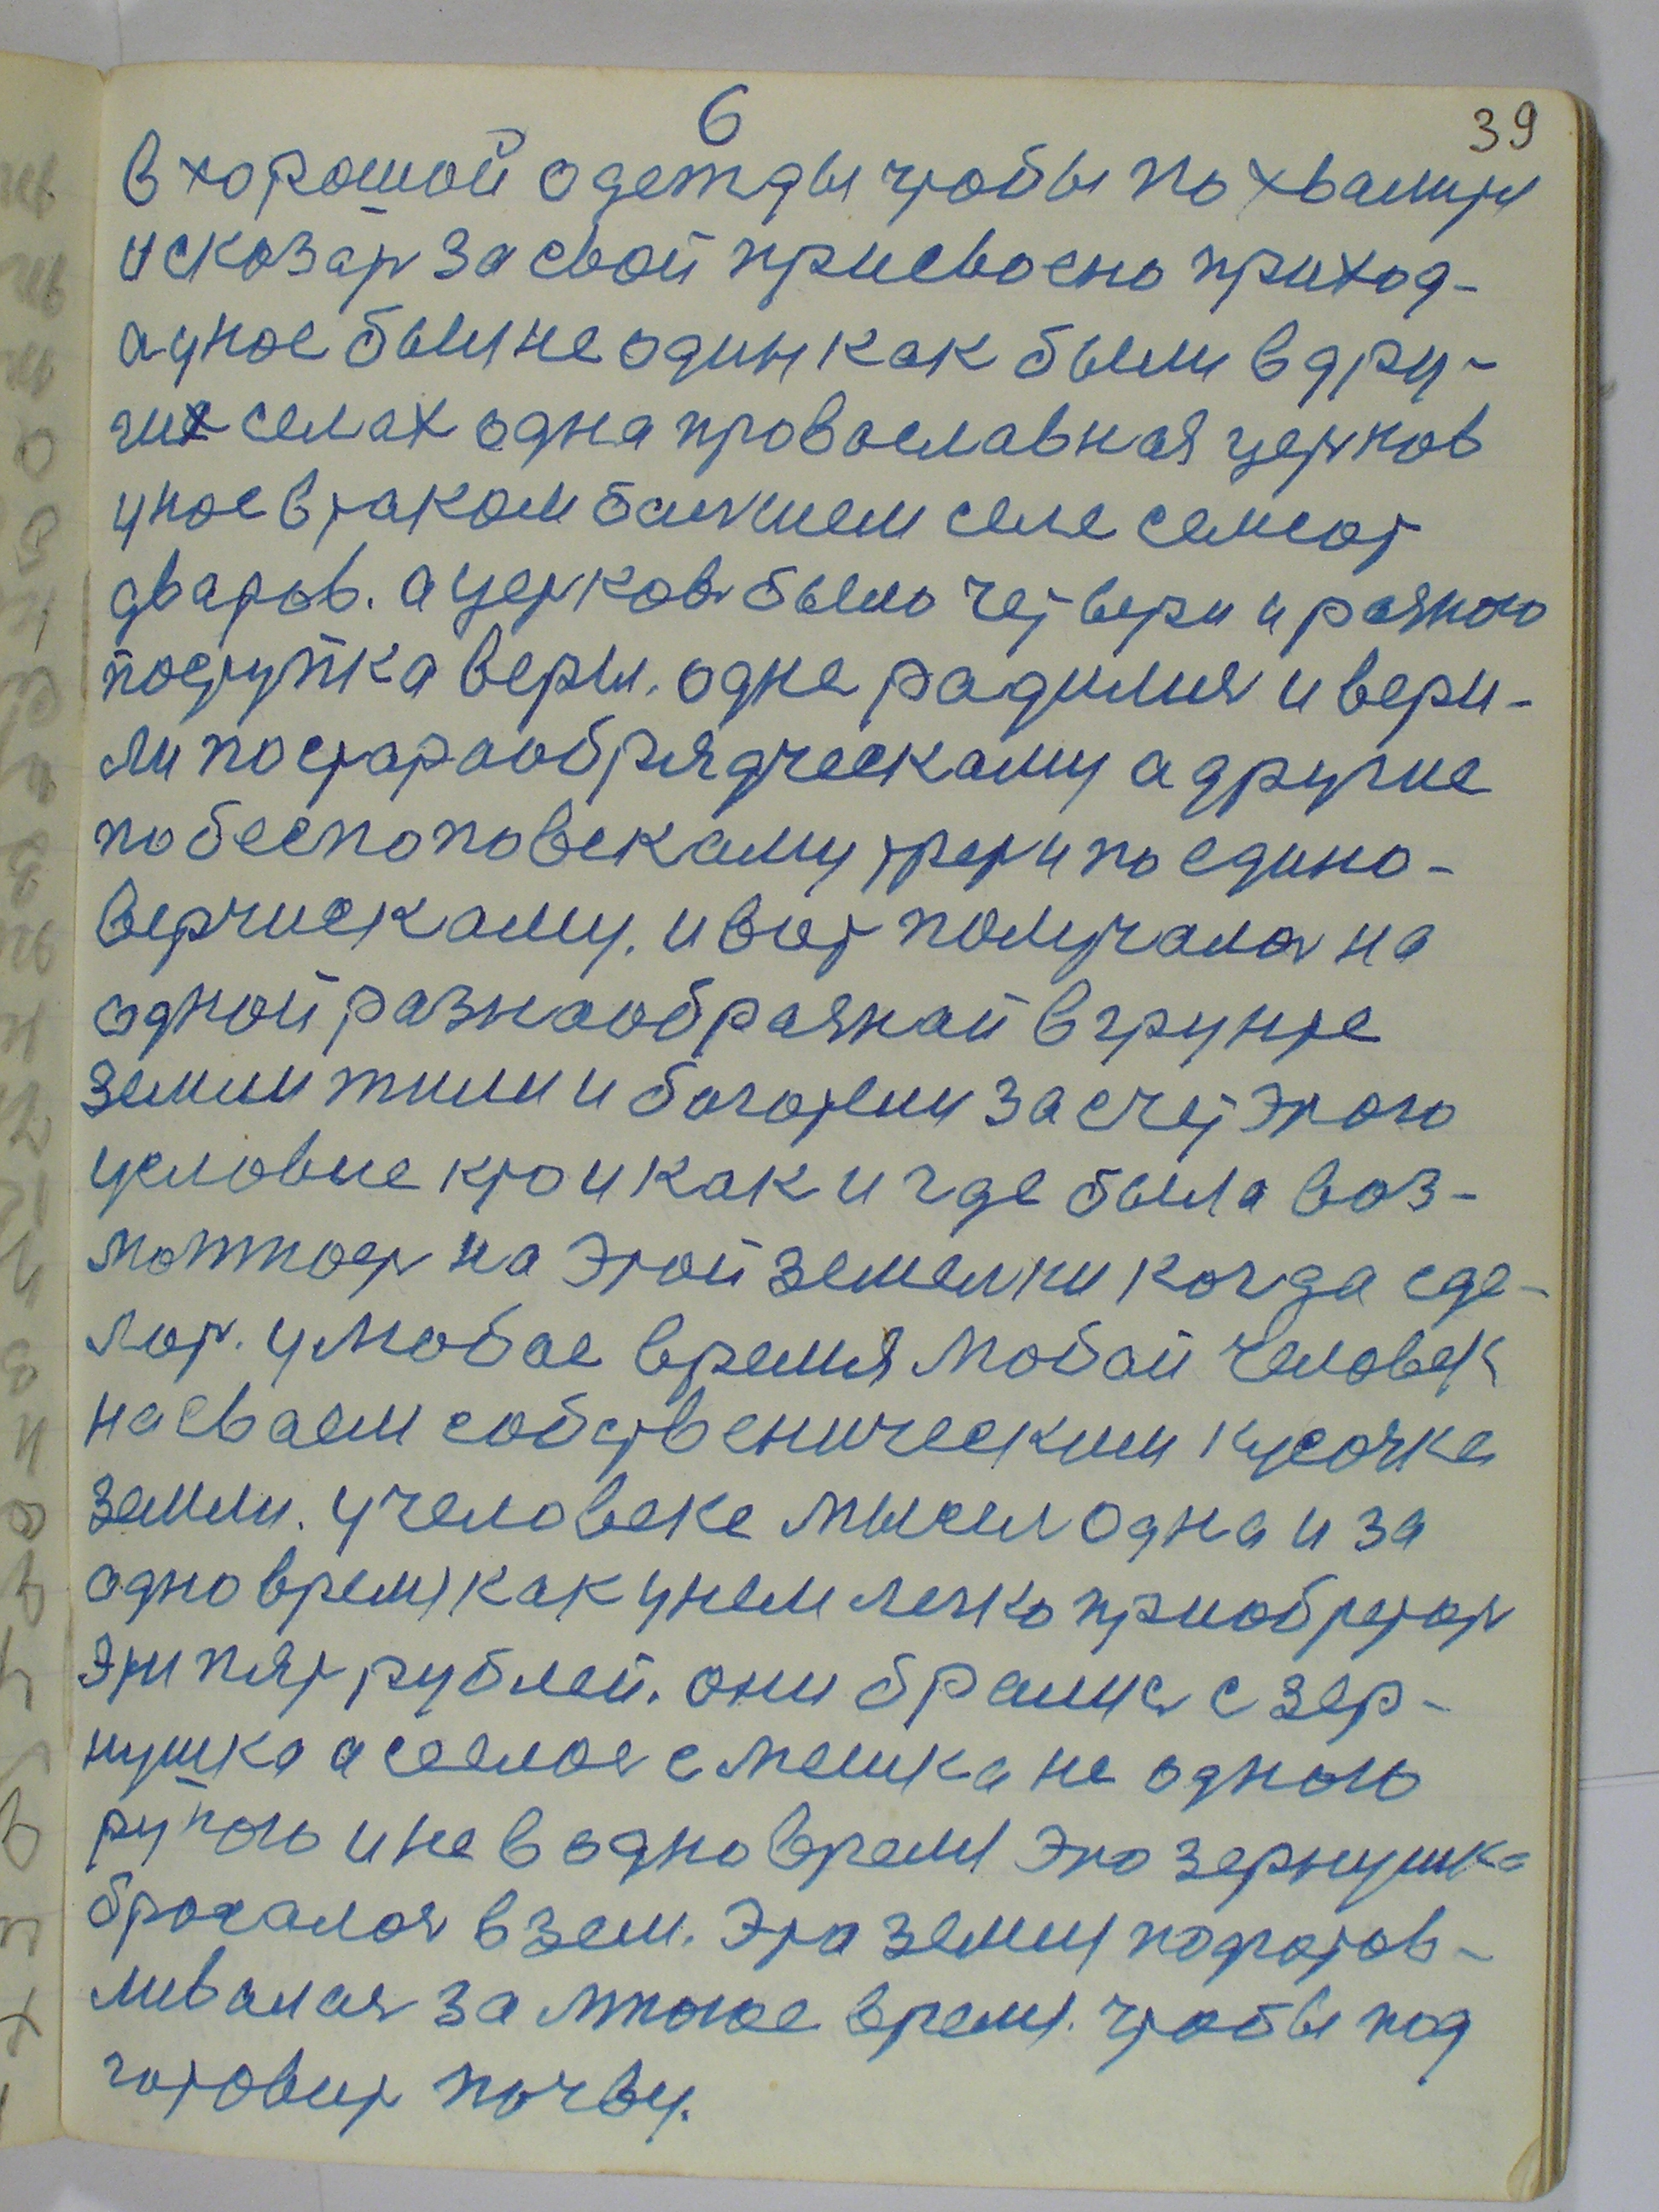 6
39
в хорошой одежды чтобы похвалить
и сказать за свой присвосно приход-
а у нас был не один как были в дру-
гих селах одна провославная церков
у нас в таком болшем селе семсот
дваров. а церковь было четвери и разною
поступка веры. одне радилис и вери-
ли по старообрядческаму а другие
по беспоповскаму трети по едино-
верчискаму. и вот получалос на
одной разнаобразнай в грунте
земли жили и богатели за счет этого
условие кто и как и где была воз-
можност на этой землички когда сде-
лат. у любое время любой человек
на сваем собственическим кусочке
земли. у человеке мысел одна и за
одно время как у нем легко приобретат
эти пят рублей. они бралис с зер-
нушка а сеелос с мешка не одною
рукою и не в одно время это зернушка
бросалос в зем. Эта земля подготов-
ливалас за многое время. чтобы под
готовит почву.